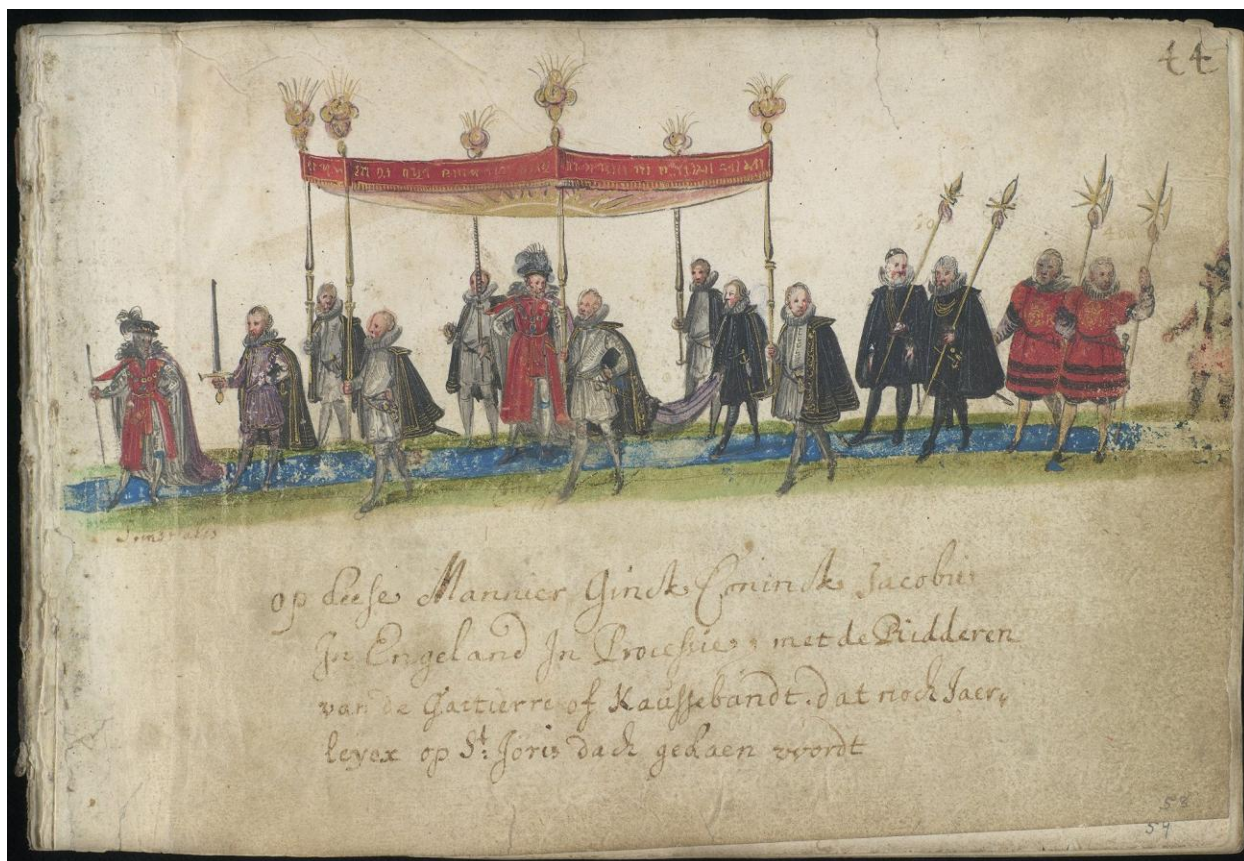 44
op deese Mannier Ginck Coninck Jacobus
In Engeland In Processie, met de Ridderen
van de Gartierre of Kaussebandt, dat noch Jaer,,
leyex op St: Joris dach gedaen wordt
58
54